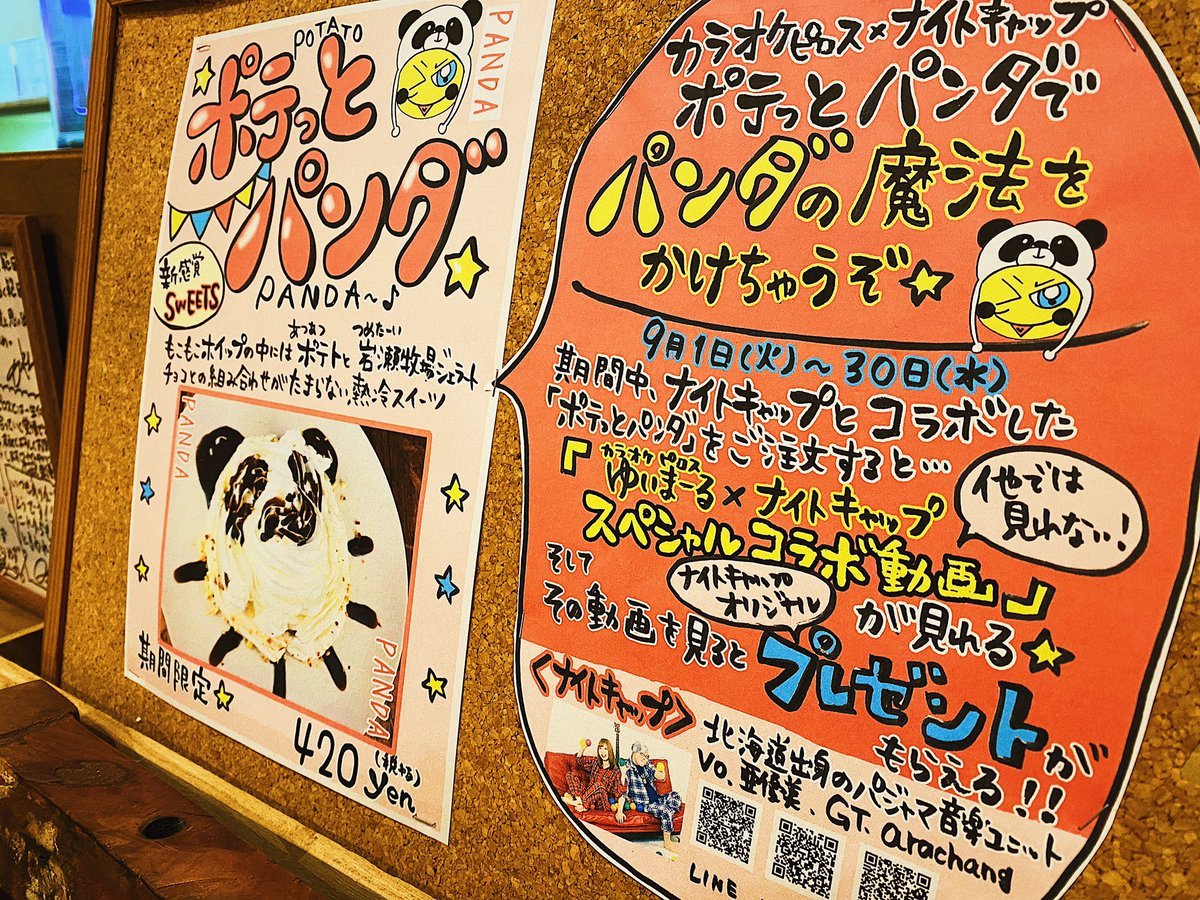 POTATO
ポテっと
パンダ
PANDA~♪
PANDA
新感覚
SWEETS
あつあつ つめたーい
もこもこホイップの中にはポテトと岩瀬牧場ジェラート
チョコとの組み合わせがたまらない熱冷スイーツ
PANDA
PANDA
期間限定
420yen
カラオケピロス×ナイトキャップ
ポテっとパンダで
パンダの魔法を
かけちゃうぞ
9月1日(火)~30日(水)
期間中、ナイトキャップとコラボした
「ポテっとパンダ」をご注文すると…
カラオケ ピロス
「ゆいまーる×ナイトキャップ
スペシャルコラボ動画」
他では
見れない!
が見れる
そして
その動画を見ると
ナイトキャップ
オリジナル
プレゼントが
もらえる!!
<ナイトキャップ>
北海道出身のパジャマ音楽ユニット
Vo.亜優美、GT.arachang
LINE